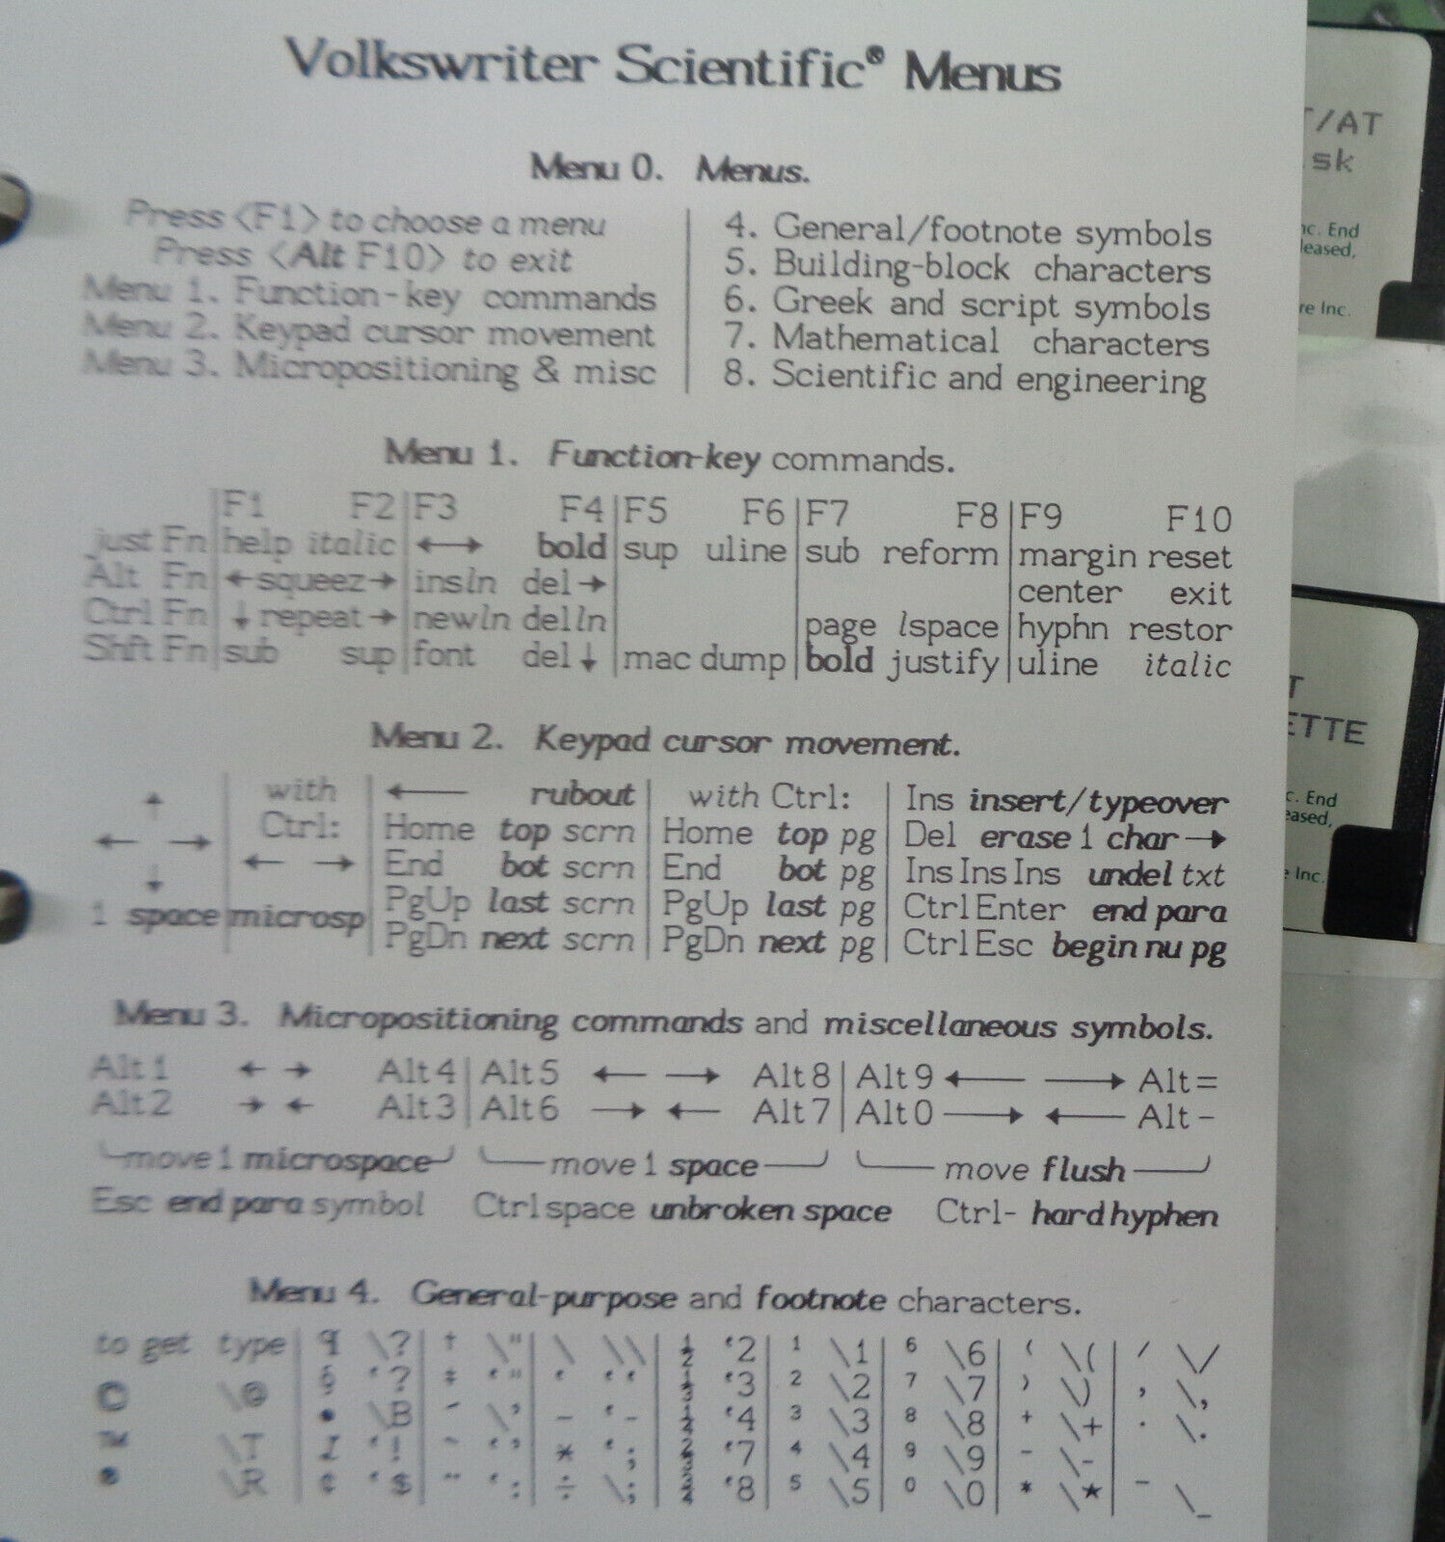 Volkswriter Scientific® Menus
Menu 0. Menus.
Press <F1> to choose a menu
Press <Alt F10> to exit
Menu 1. Function-key commands
Menu 2. Keypad cursor movement
Menu 3. Micropositioning & misc
4. General/footnote symbols
5. Building-block characters
6. Greek and script symbols
7. Mathematical characters
8. Scientific and engineering
Menu 1. Function-key commands.
F1 F2 F3 F4 F5 F6 F7 F8 F9 F10
just Fn help italic ←→ bold sup uline sub reform margin reset
Alt Fn ←squeez→ insln del→ center exit
Ctrl Fn ↓repeat→ newln delln page lspace hyphn restor
Shft Fn sub sup font del↓ mac dump bold justify uline italic
Menu 2. Keypad cursor movement.
↑ with ← rubout with Ctrl: Ins insert/typeover
← → Ctrl: Home top scrn Home top pg Del erase 1 char→
↓ ← → End bot scrn End bot pg Ins Ins Ins undel txt
1 space microsp PgUp last scrn PgUp last pg Ctrl Enter end para
PgDn next scrn PgDn next pg Ctrl Esc begin nu pg
Menu 3. Micropositioning commands and miscellaneous symbols.
Alt1 ← → Alt4 Alt5 ← → Alt8 Alt9 ← → Alt=
Alt2 → ← Alt3 Alt6 → ← Alt7 Alt0 → ← Alt-
move 1 microspace move 1 space move flush
Esc end para symbol Ctrl space unbroken space Ctrl- hard hyphen
Menu 4. General-purpose and footnote characters.
to get type ¶ \? † \" \ \\ ½ '2 1 \1 6 \6 ( \( / \/
© \@ § '? ‡ '" ' '' '3 2 \2 7 \7 ) \) , \,
™ \T • \B ´ \' - '- '4 3 \3 8 \8 + \+ . \.
\R '! * '; '7 4 \4 9 \9 - \-
¢ '$ ¨ ': ÷ \; '8 5 \5 0 \0 * \* - \_
/AT
sk
nc. End
leased,
re Inc.
T
ETTE
c. End
eased,
Inc.